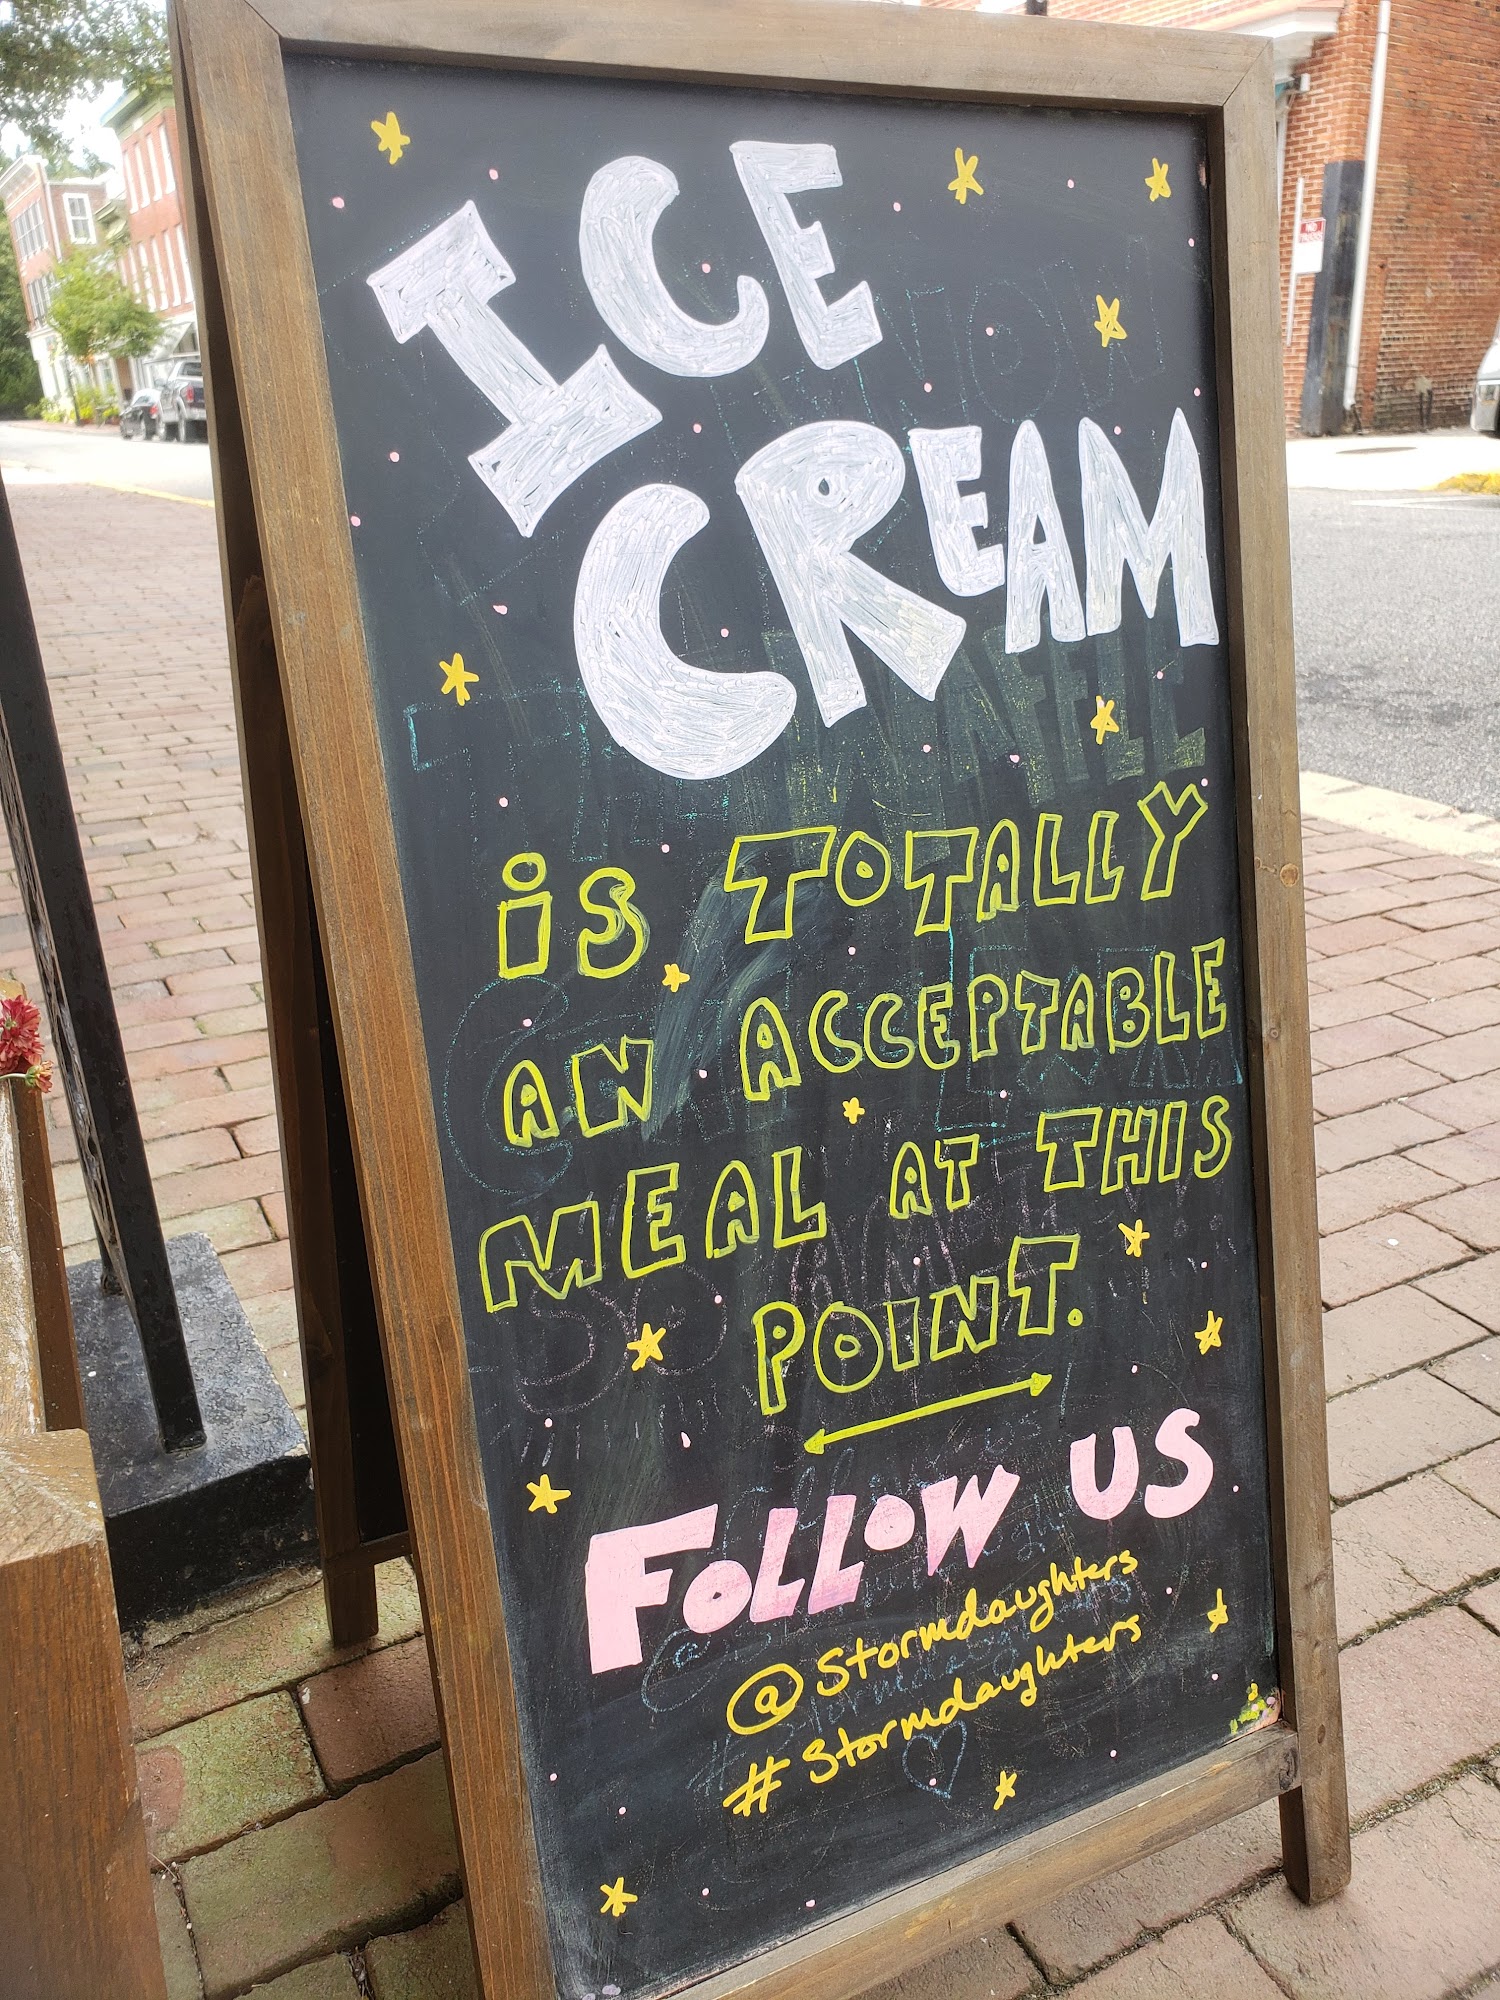 ICE
CREAM
is TOTALLY
AN ACCEPTABLE
MEAL AT THIS
POINT.
FOLLOW US
@Stormdaughters
#Stormdaughters
NO